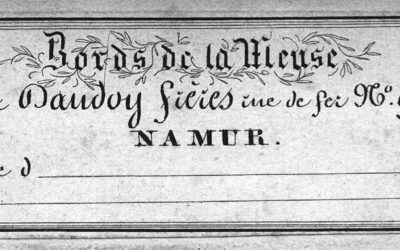 Bords de la Meuse
Dandoy frères rue de fer Nº.
NAMUR.